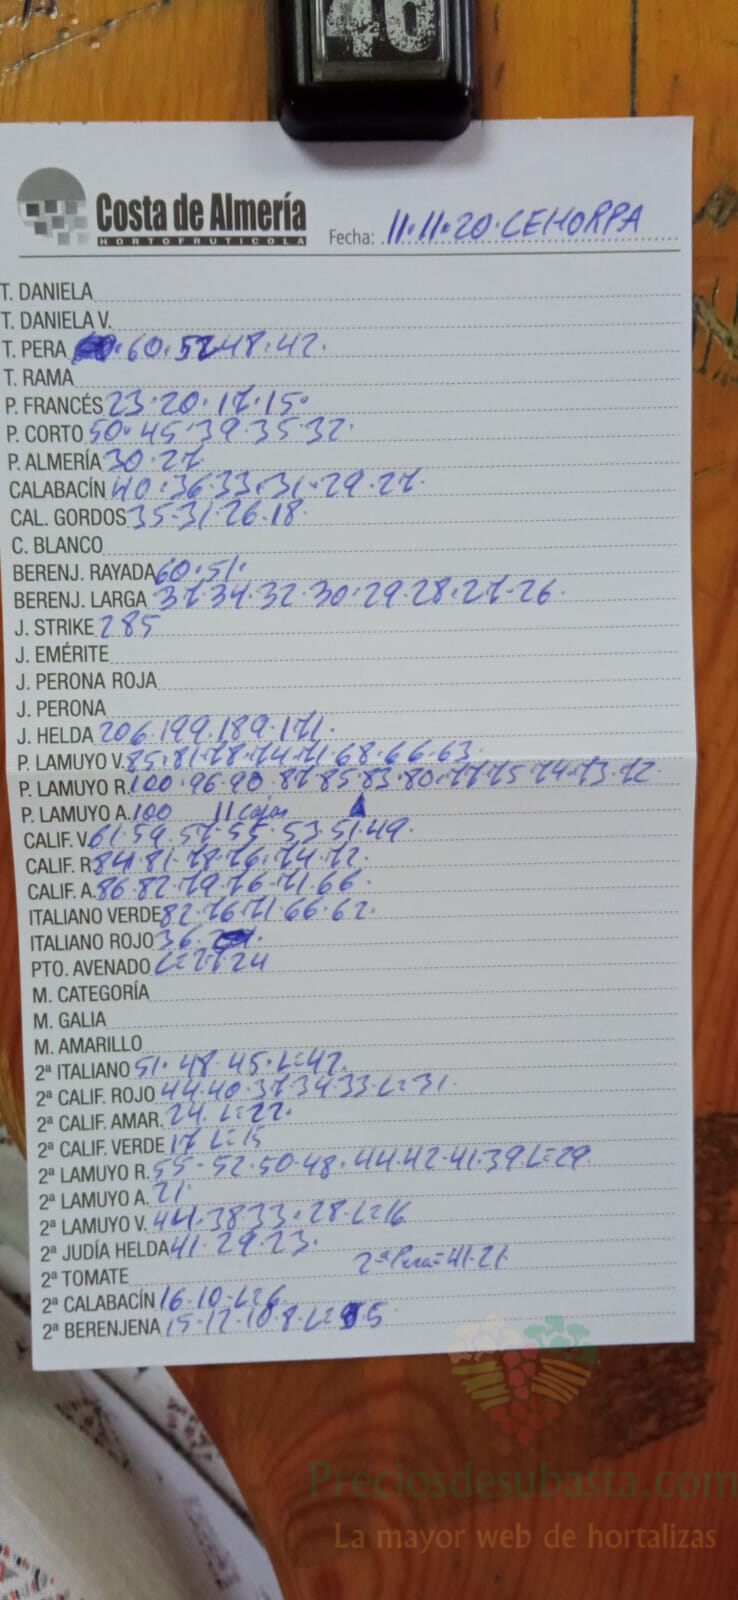 46
Costa de Almería
HORTOFRUTICOLA
Fecha: 11.11.20. CEHORPA
T. DANIELA
T. DANIELA V.
T. PERA 60. 52 48. 42.
T. RAMA
P. FRANCÉS 23. 20. 17. 15.
P. CORTO 50. 45. 39. 35. 32.
P. ALMERÍA 30. 27
CALABACÍN 40. 36. 33. 31. 29. 27.
CAL. GORDOS 35. 31. 26. 18.
C. BLANCO
BERENJ. RAYADA 60. 51.
BERENJ. LARGA 37. 34. 32. 30. 29. 28. 27. 26.
J. STRIKE 285
J. EMÉRITE
J. PERONA ROJA
J. PERONA
J. HELDA 206. 199. 189. 171.
P. LAMUYO V. 85. 81. 78. 74. 71. 68. 66. 63.
P. LAMUYO R. 100. 96. 90. 87 85. 83. 80. 77. 75 74. 73. 72.
P. LAMUYO A. 100 11 cajas
CALIF. V. 61. 59. 57. 55. 53. 51. 49.
CALIF. R. 84. 81. 78. 76. 74. 72.
CALIF. A. 86. 82. 79. 76. 71. 66.
ITALIANO VERDE 82. 76. 71. 66. 62.
ITALIANO ROJO 36.
PTO. AVENADO L=27. 24
M. CATEGORÍA
M. GALIA
M. AMARILLO
2ª ITALIANO 51. 48. 45. L=42.
2ª CALIF. ROJO 44. 40. 37. 34. 33. L=31.
2ª CALIF. AMAR. 24. L=22.
2ª CALIF. VERDE 17 L=15
2ª LAMUYO R. 55. 52. 50. 48. 44. 42. 41. 39. L=29.
2ª LAMUYO A. 21.
2ª LAMUYO V. 44. 38 33. 28. L=16
2ª JUDÍA HELDA 41. 29. 23.
2ª Pera=41. 21.
2ª TOMATE
2ª CALABACÍN 16. 10. L=6
2ª BERENJENA 15. 12. 10. 8. L=5
Preciosdesubasta.com
La mayor web de hortalizas